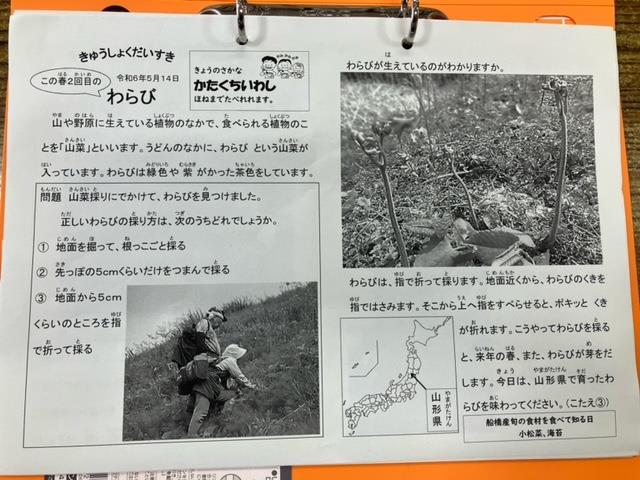 きゅうしょくだいすき
この春2回目の
令和6年5月14日
わらび
きょうのさかな
かたくちいわし
ほねまでたべれれます。
山や野原に生えている植物のなかで、食べられる植物のこ
とを「山菜」といいます。うどんのなかに、わらび という山菜が
入っています。わらびは緑色や 紫 がかった茶色をしています。
問題 山菜採りにでかけて、わらびを見つけました。
正しいわらびの採り方は、次のうちどれでしょうか。
① 地面を掘って、根っこごと採る
② 先っぽの5cmくらいだけをつまんで採る
③ 地面から5cm
くらいのところを指
で折って採る
わらびが生えているのがわかりますか。
わらびは、指で折って採ります。地面近くから、わらびのくきを
指ではさみます。そこから上へ指をすべらせると、ポキッと くき
が折れます。こうやってわらびを採る
と、来年の春、また、わらびが芽をだ
します。今日は、山形県で育ったわ
らびを味わってください。（こたえ③）
山形県
船橋産旬の食材を食べて知る日
小松菜、海苔